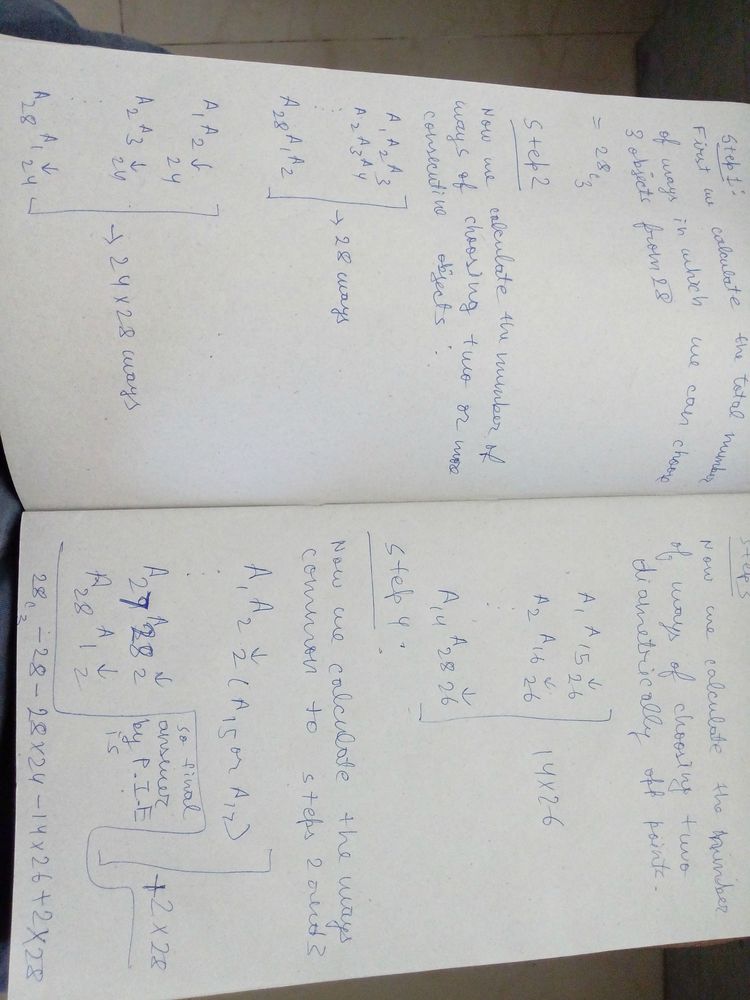 Step 1:
First we calculate the total number
of ways in which we can choose
3 objects from 28
= 28c3
Step 2
Now we calculate the number of
ways of choosing two or more
consecutive objects :
A1 A2 A3
A2 A3 A4
⋮
A28 A1 A2
→ 28 ways
A1 A2 ↓
24
A2 A3 ↓
24
⋮
A28 A1 ↓
24
→ 24 x 28 ways
Step 3
Now we calculate the number
of ways of choosing two
diametrically opp points.
A1 A15 ↓
26
A2 A16 ↓
26
⋮
A14 A28 ↓
26
14 x 26
Step 4:
Now we calculate the ways
common to steps 2 and 3
A1 A2 ↓
2 (A15 or A
⋮
A27 A28 ↓
2
A28 A1 ↓
2
+2 x 28
so final
answer
by P.I.E
is
28c3 - 28 - 28 x 24 - 14 x 26 + 2 x 28